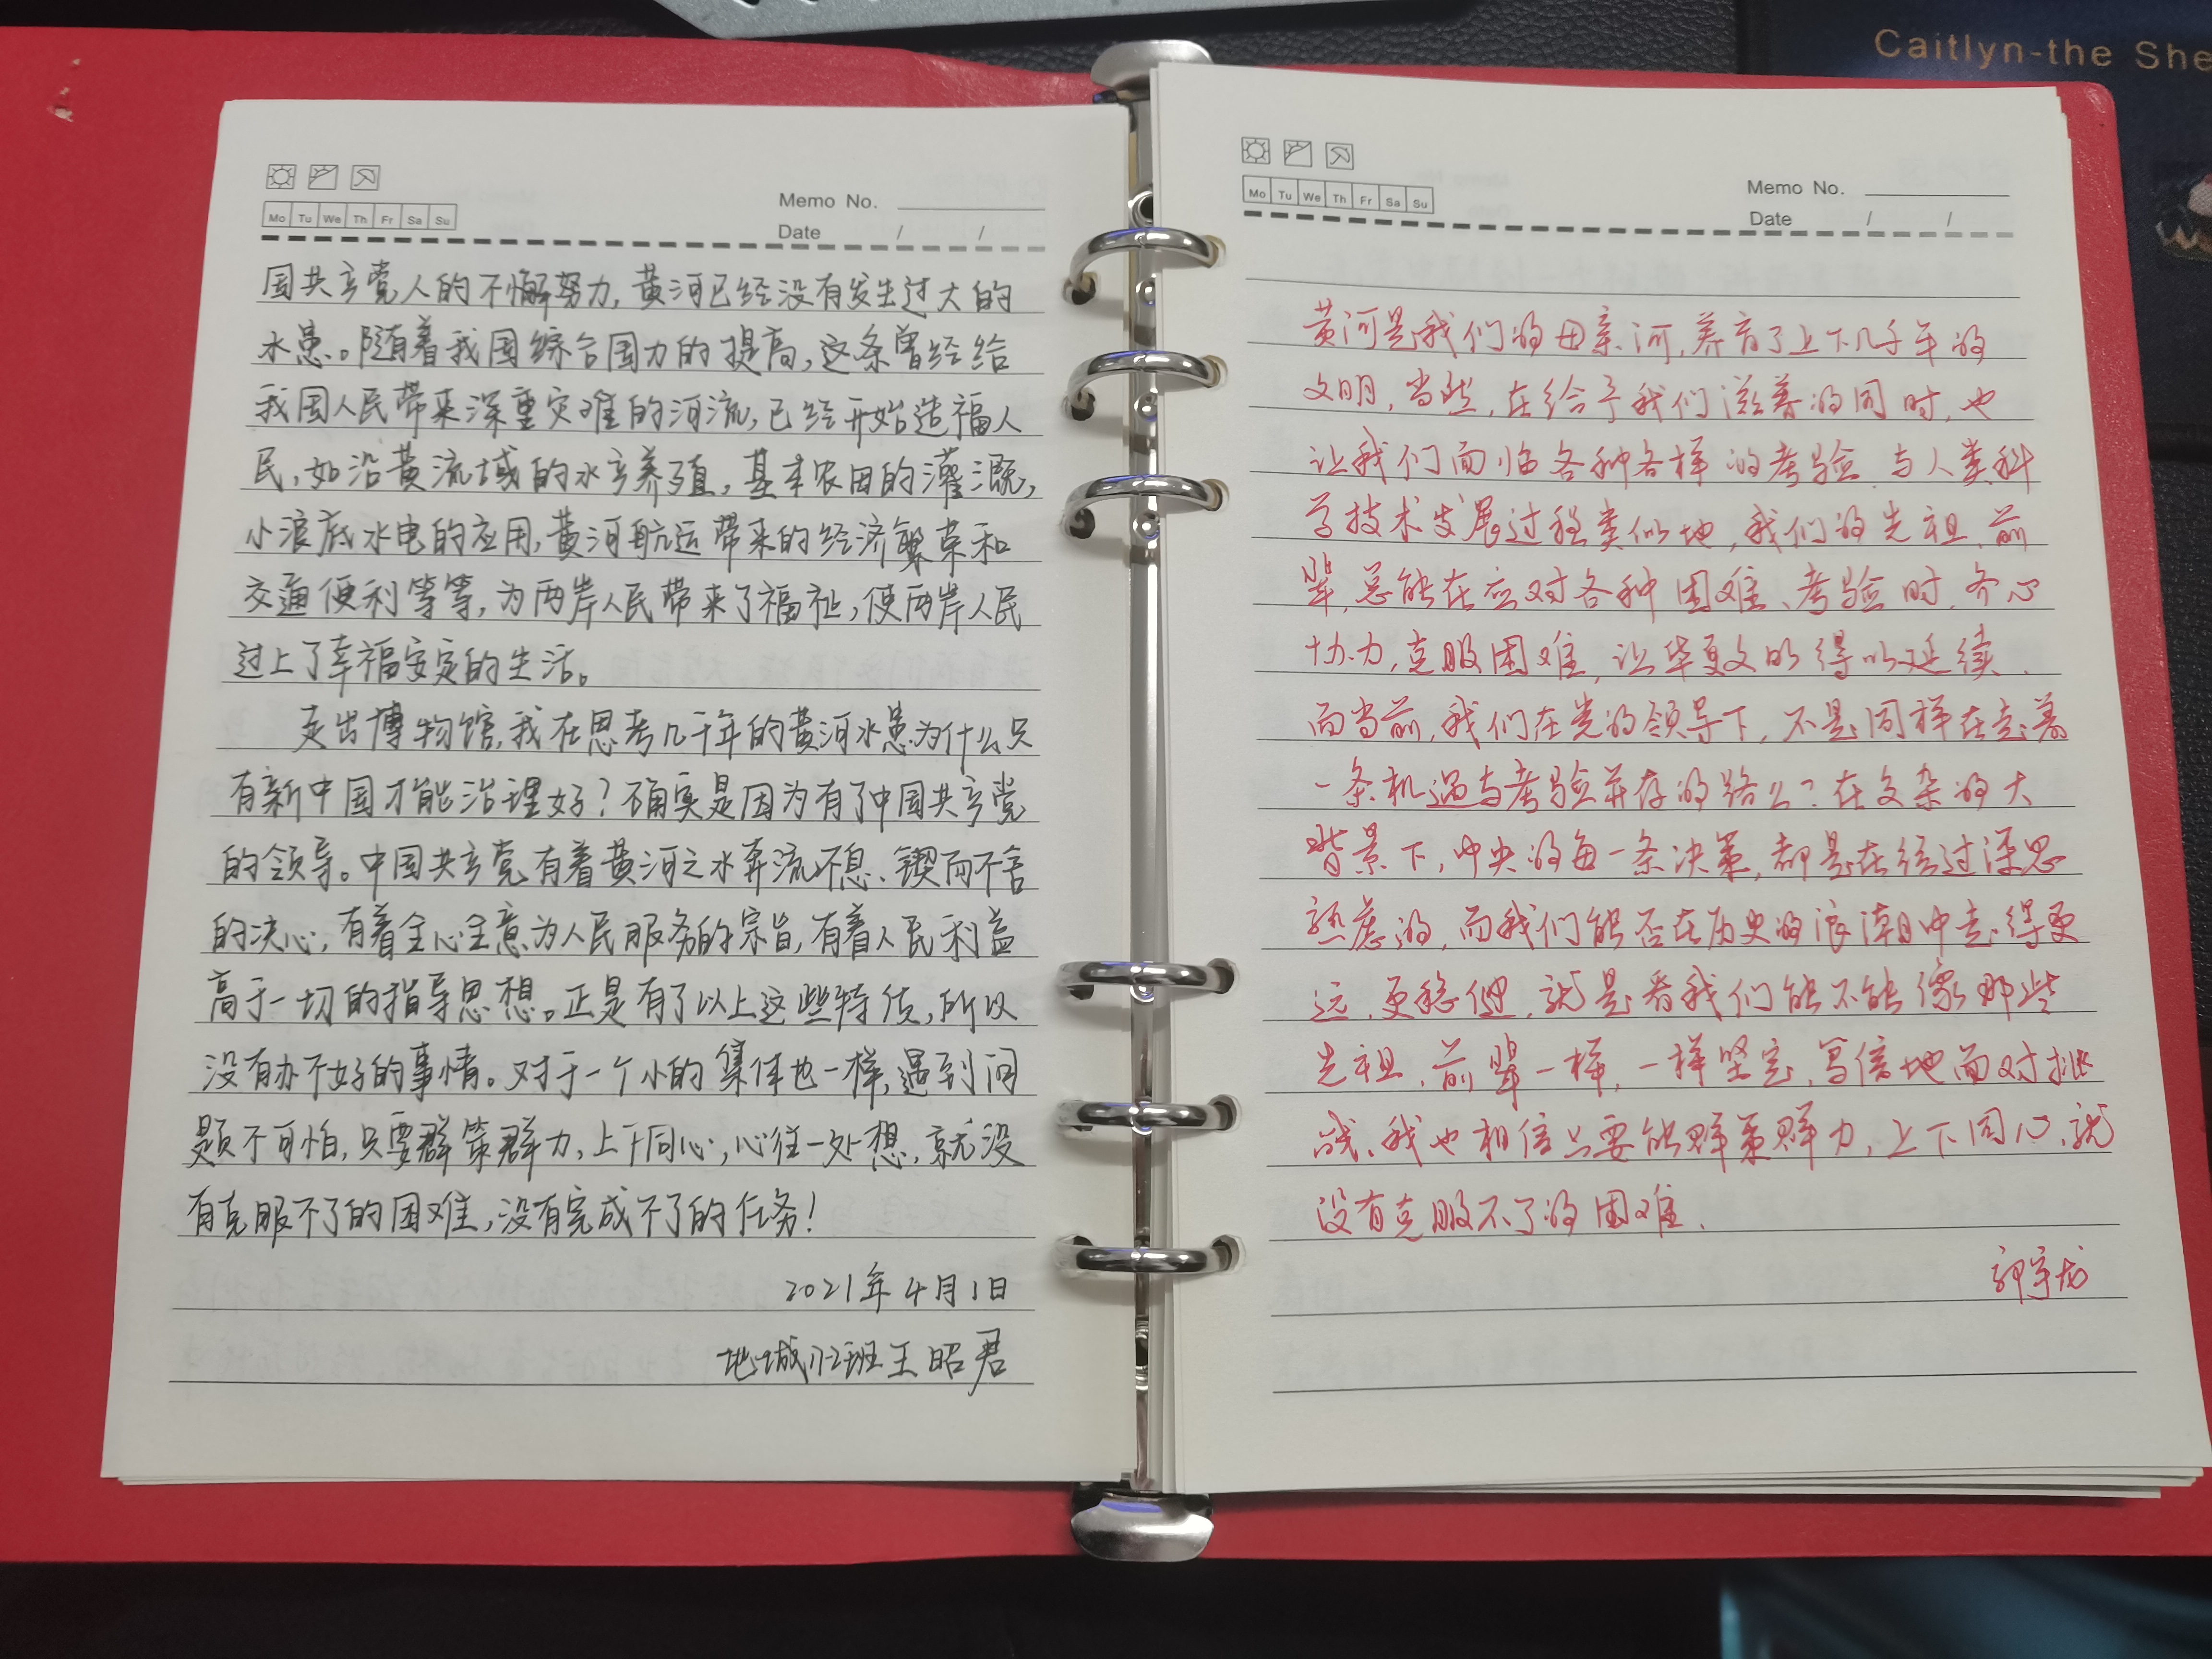 Caitlyn-the She
Memo No.
Mo Tu We Th Fr Sa Su
Date / /
国共产党人的不懈努力,黄河已经没有发生过大的
水患。随着我国综合国力的提高,这条曾经给
我国人民带来深重灾难的河流,已经开始造福人
民,如沿黄流域的水产养殖,基本农田的灌溉,
小浪底水电的应用,黄河航运带来的经济繁荣和
交通便利等等,为两岸人民带来了福祉,使两岸人民
过上了幸福安定的生活。
走出博物馆,我在思考几千年的黄河水患为什么只
有新中国才能治理好?确实是因为有了中国共产党
的领导。中国共产党有着黄河之水奔流不息、锲而不舍
的决心,有着全心全意为人民服务的宗旨,有着人民利益
高于一切的指导思想。正是有了以上这些特质,所以
没有办不好的事情。对于一个小的集体也一样,遇到问
题不可怕,只要群策群力,上下同心,心往一处想,就没
有克服不了的困难,没有完成不了的任务!
2021年4月1日
班王昭君
Memo No.
Mo Tu We Th Fr Sa Su
Date / /
黄河是我们的母亲河,养育了上下几千年的
文明,当然,在给予我们滋养的同时,也
让我们面临各种各样的考验.与人类科
学技术发展过程类似地,我们的先祖、前
辈,总能在应对各种困难、考验时,齐心
协力,克服困难,让华夏文明得以延续.
而当前,我们在党的领导下,不是同样在走着
一条机遇与考验并存的路么?在复杂的大
背景下,中央的每一条决策,都是在经过深思
熟虑的,而我们能否在历史的浪潮中走得更
远、更稳健,就是看我们能不能像那些
先祖、前辈一样,一样坚定、笃信地面对挑
战,我也相信只要能群策群力,上下同心,就
没有克服不了的困难.